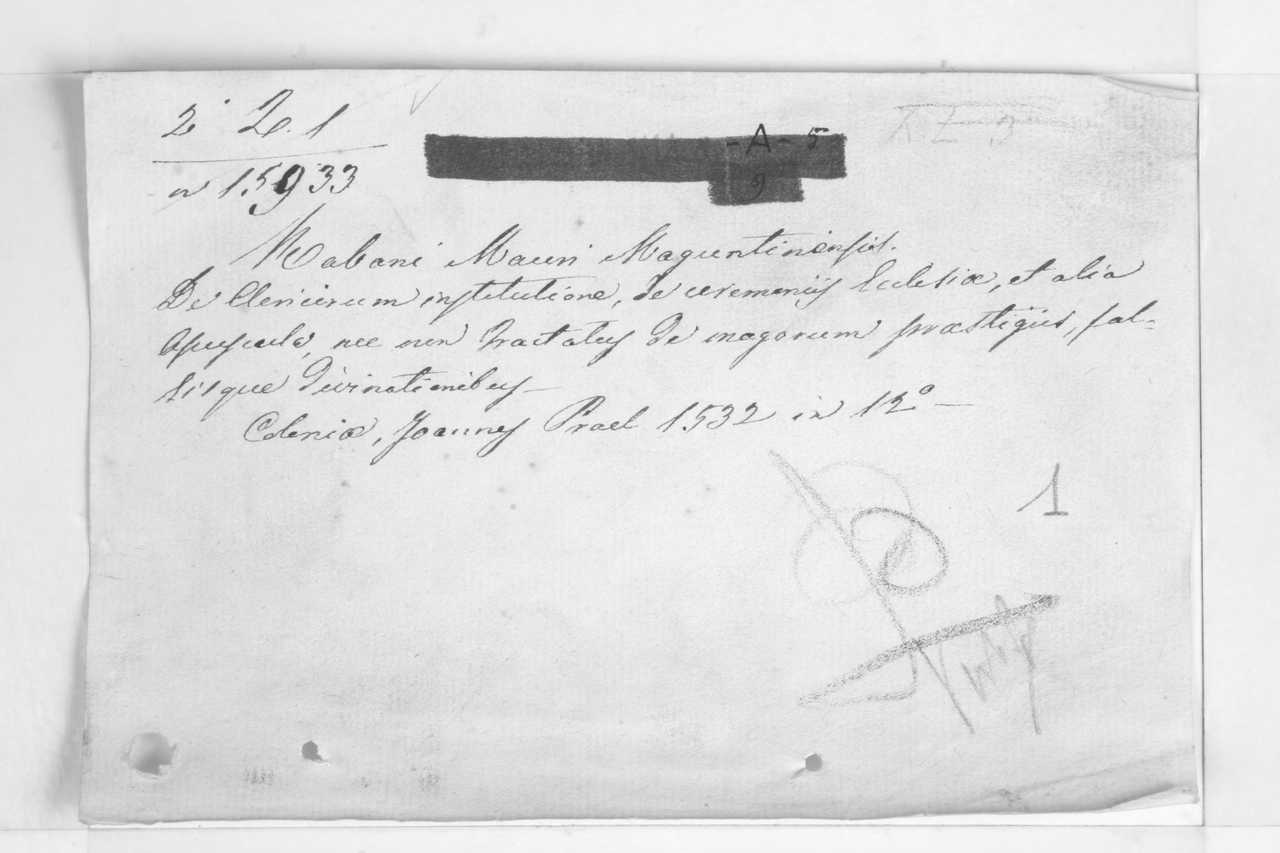 2 2. 1
n 15933
-A- 5
9
Rabani Mauri Maguntinensis.
De Clericorum institutione, de ceremoniis Eclesiæ, et alia
opuscula, nec non Tractatus de magorum præstigiis, fal-
sisque divinationibus_
Coloniæ, Joannes Prael 1532 in 12º _
1